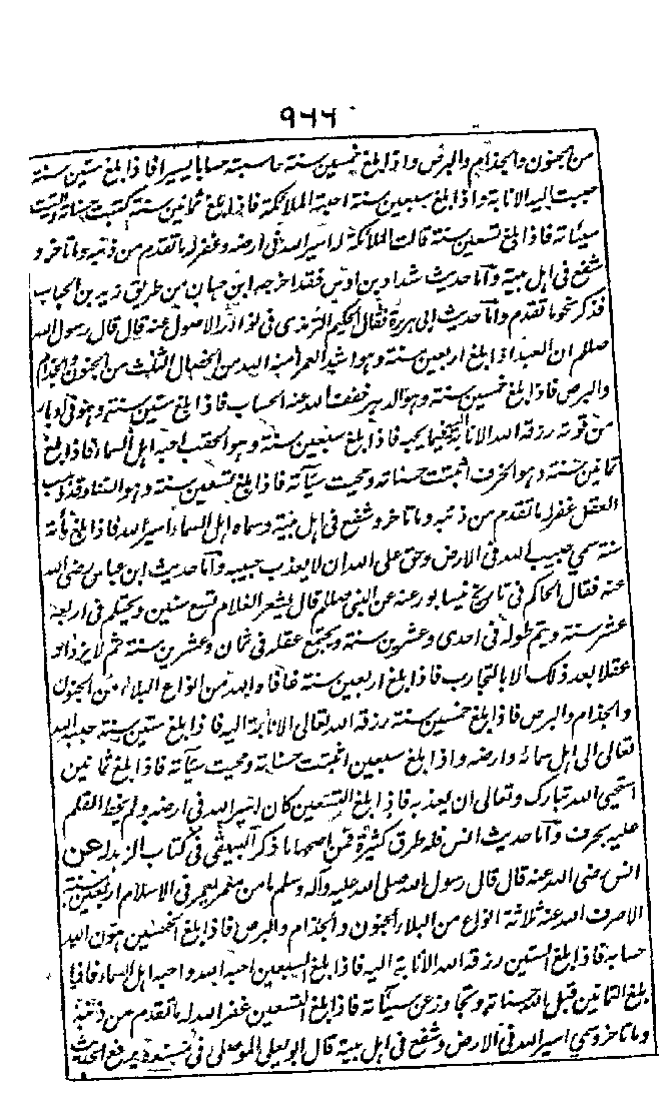 ٩٦٦
من الجنون والجذام والبرص واذا بلغ خمسين سنة حاسبته حسابا يسيرا فاذا بلغ ستين سنة
حببت اليه الانابة واذا بلغ سبعين سنة احبته الملائكة فاذا بلغ ثمانين سنة كتبت حسناته والقيت
سيئاته فاذا بلغ تسعين سنة قالت الملائكة اسير الله فى ارضه وغفر له ما تقدم من ذنبه وما تاخر و
شفع فى اهل بيته وأما حديث شداد بن اوس فقد اخرجه ابن حبان من طريق زيد بن الحباب
فذكر نحو ما تقدم وأما حديث ابى هريرة فقال الحكيم الترمذى فى نوادر الاصول عنه قال قال رسول الله
صللم ان العبد اذا بلغ اربعين سنة وهو اشد العمر أمنه الله من الخصال الثلث من الجنون والجذام
والبرص فاذا بلغ خمسين سنة وهو الدهر خفف الله عنه الحساب فاذا بلغ ستين سنة وهو فى ادبار
من قوته رزقه الله الانابة فيما يحبه فاذا بلغ سبعين سنة وهو الحقب احبه اهل السماء فاذا بلغ
ثمانين سنة وهو الخرف اثبتت حسناته ومحيت سيأته فاذا بلغ تسعين سنة وهو الفناء وقد ذهب
العقل غفر له ما تقدم من ذنبه وما تاخر وشفع فى اهل بيته وسماه اهل السماء اسير الله فاذا بلغ مأته
سنة سمي حبيب الله فى الارض وحق على الله ان لا يعذب حبيبه وأما حديث ابن عباس رضى الله
عنه فقال الحاكم فى تاريخ نيسابور عنه عن النبى صللم قال يثغر الغلام تسع سنين ويحتلم فى اربعة
عشر سنة ويتم طوله فى احدى وعشرين سنة ويجتمع عقله فى ثمان وعشرين سنة ثم لا يزداد
عقلا بعد ذلك الا بالتجارب فاذا بلغ اربعين سنة عافاه الله من انواع البلاء من الجنون
والجذام والبرص فاذا بلغ خمسين سنة رزقه الله تعالى الانابة اليه فاذا بلغ ستين سنة حببه الله
تعالى الى اهل سمائه وارضه واذا بلغ سبعين اثبتت حسناته ومحيت سيأته فاذا بلغ ثمانين
استحيى الله تبارك وتعالى ان يعذبه فاذا بلغ التسعين كان اسير الله فى ارضه ولم يخط القلم
عليه بحرف وأما حديث انس فله طرق كثيرة فمن اصحها ما ذكر البيهقى فى كتاب الزهد له عن
انس رضى الله عنه قال قال رسول الله صلى الله عليه وآله وسلم ما من معمر يعمر فى الاسلام اربعين سنة
الا صرف الله عنه ثلاثة انواع من البلاء الجنون والجذام والبرص فاذا بلغ الخمسين هون الله
حسابه فاذا بلغ الستين رزقه الله الانابة اليه فاذا بلغ السبعين احبه الله واحبه اهل السماء فاذا
بلغ الثمانين قبل الله حسناته وتجاوز عن سيئاته فاذا بلغ التسعين غفر الله له ما تقدم من ذنبه
وما تاخر وسمي اسير الله فى الارض وشفع فى اهل بيته قال ابو يعلى الموصلى فى مسنده يرفع الحديث